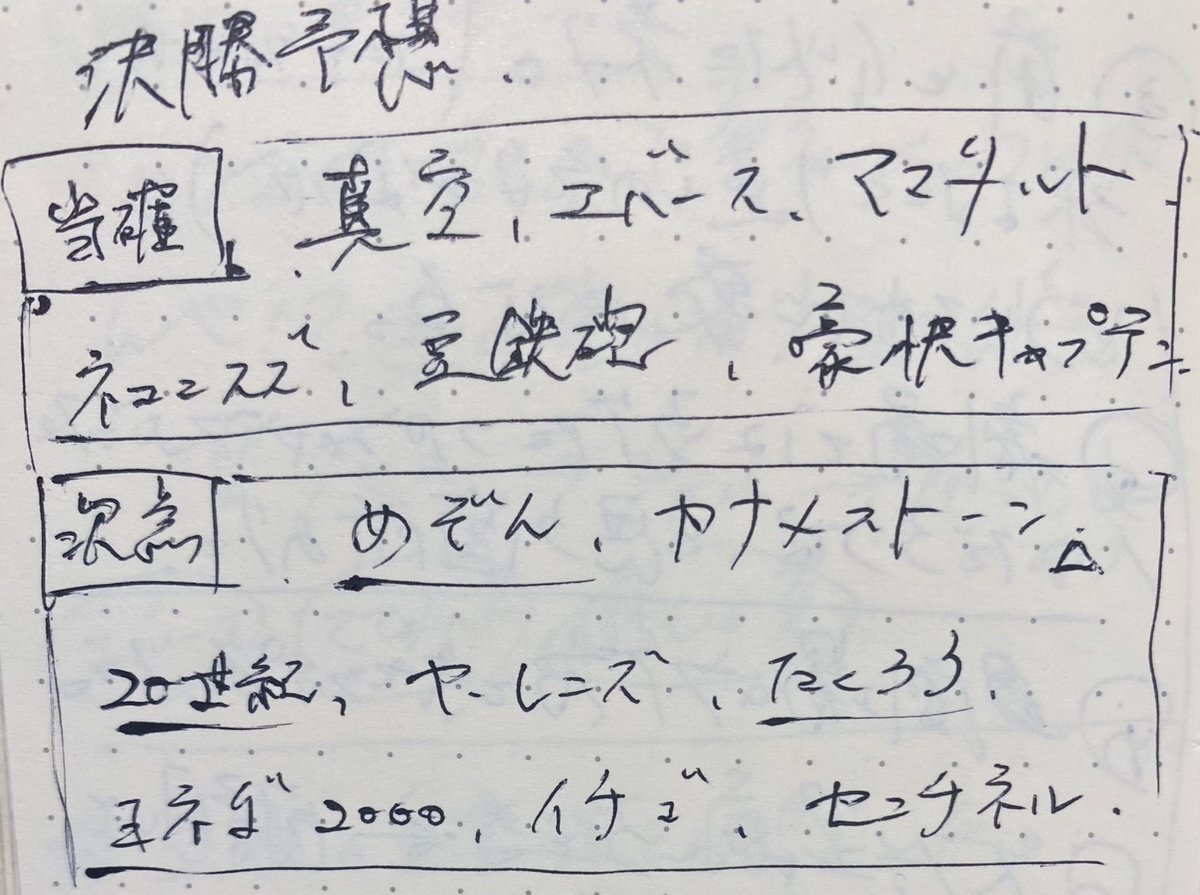 決勝予想.
当確 真空, エバース, ママタルト
ネコニスズ, 豆鉄砲, 豪快キャプテン
次点 めぞん, カナメストーン△
20世紀, ヤーレンズ, たくろう,
ヨネダ2000, イチゴ, センチネル.